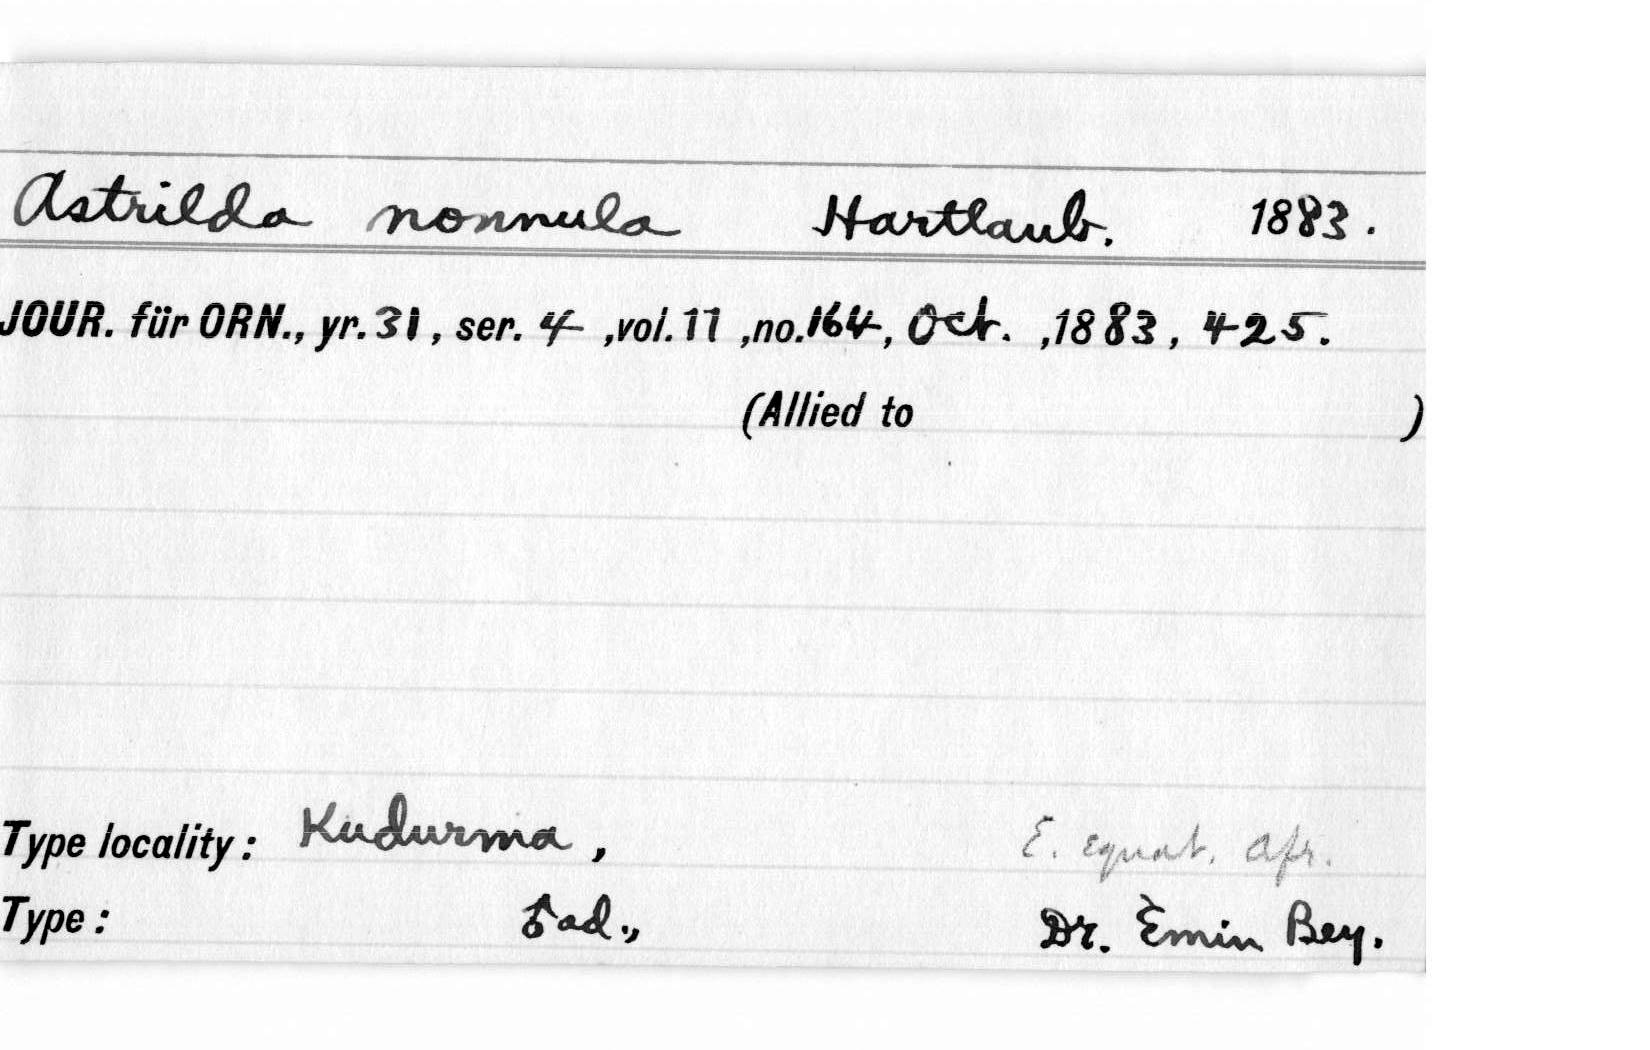 Astrilda nonnula Hartlaub. 1883.
JOUR. für ORN., yr. 31, ser. 4 ,vol. 11 ,no. 164, Oct. ,1883, 425.
(Allied to )
Type locality: Kudurma, E. equat. Afr.
Type: ad., Dr. Emin Bey.